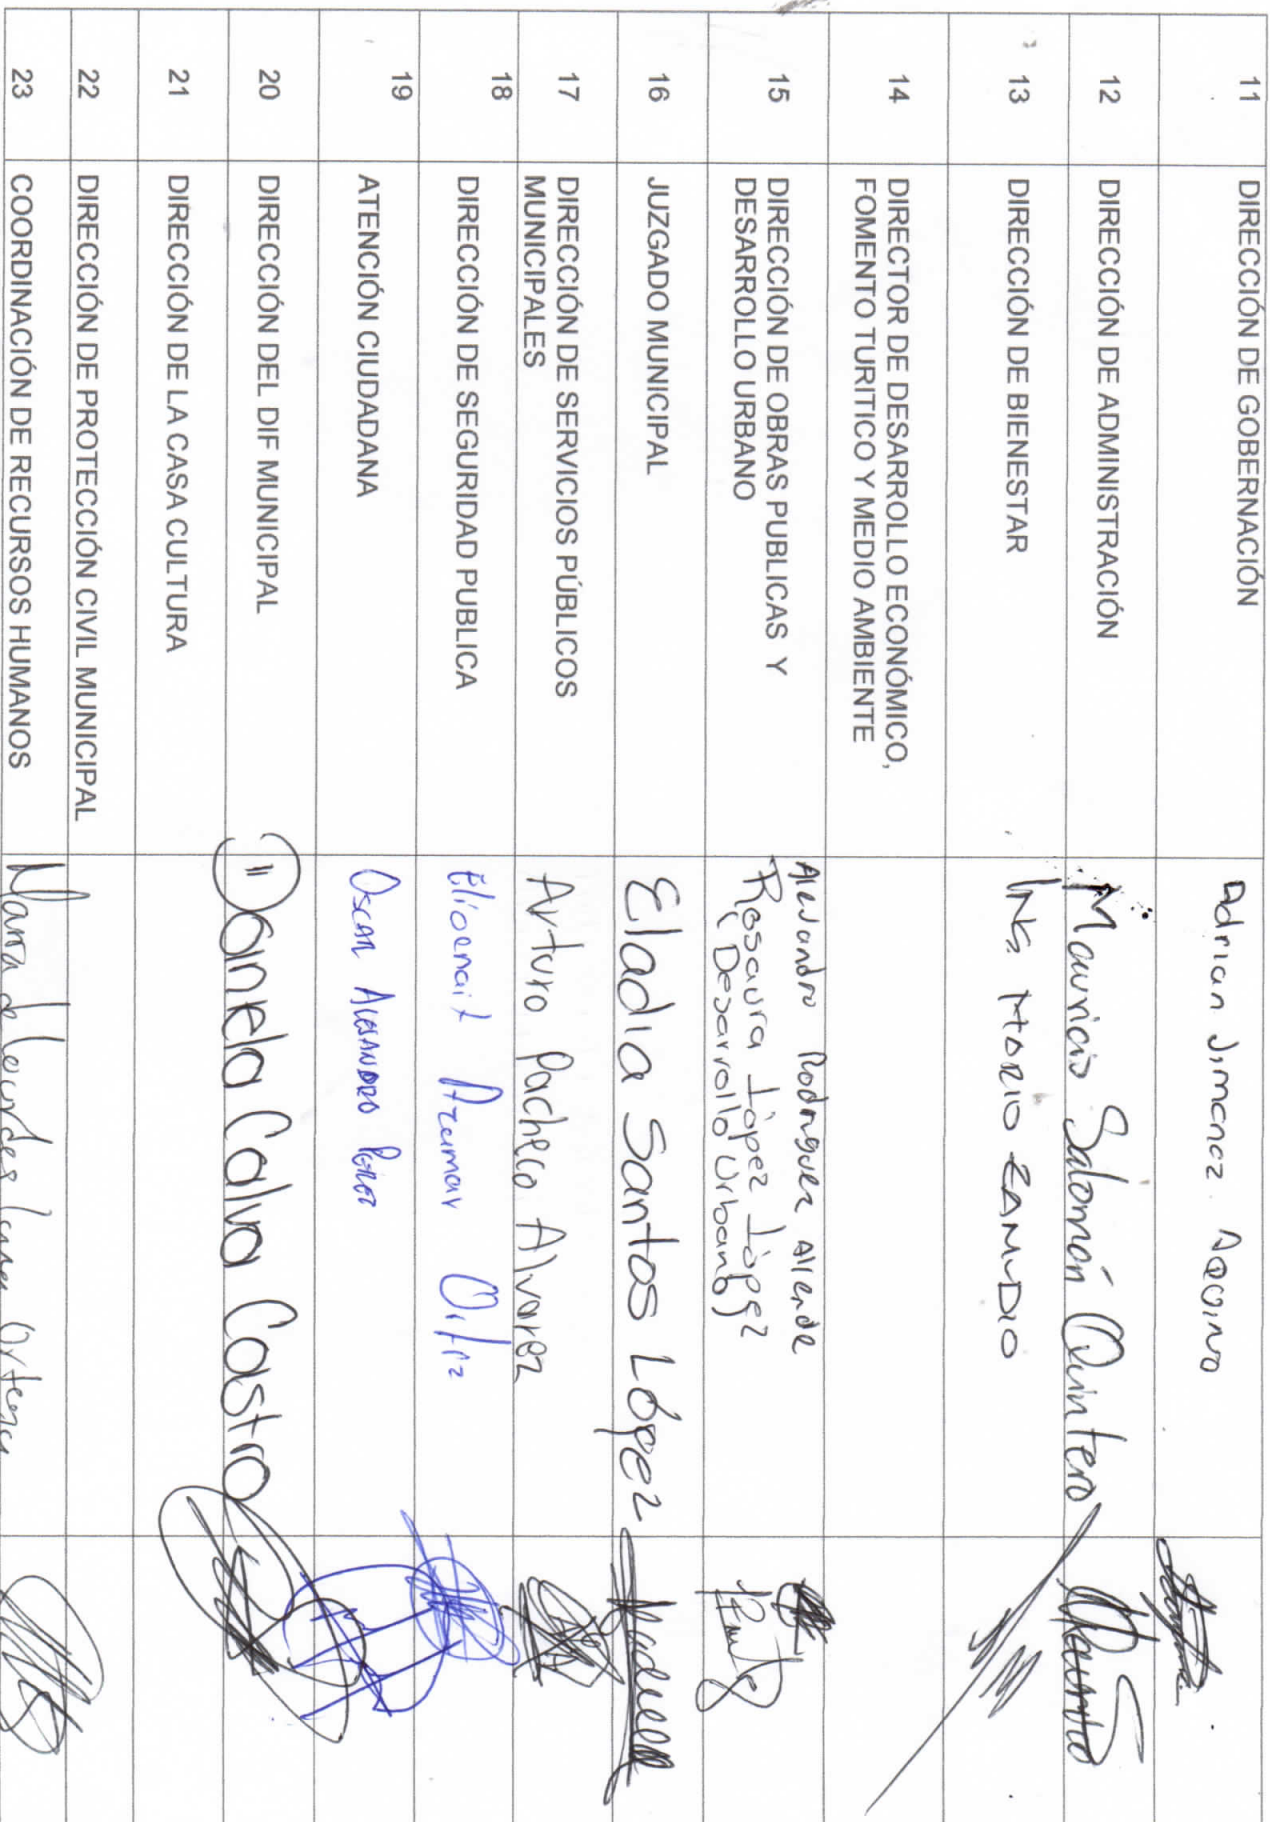 11 DIRECCIÓN DE GOBERNACIÓN Adrian Jimenez Aquino
12 DIRECCIÓN DE ADMINISTRACIÓN Mauricio Salomón Quintero
13 DIRECCIÓN DE BIENESTAR ING. MARIO ZAMUDIO
14 DIRECTOR DE DESARROLLO ECONÓMICO,
FOMENTO TURITICO Y MEDIO AMBIENTE
15 DIRECCIÓN DE OBRAS PUBLICAS Y
DESARROLLO URBANO
Alejandro Rodriguez Allende
Rosaura López López
(Desarrollo Urbano)
16 JUZGADO MUNICIPAL Eladia Santos López
17 DIRECCIÓN DE SERVICIOS PÚBLICOS
MUNICIPALES
Arturo Pacheco Alvarez
18 DIRECCIÓN DE SEGURIDAD PUBLICA Elioenait Ortiz
19 ATENCIÓN CIUDADANA OSCAR ALESANDRO PEREZ
20 DIRECCIÓN DEL DIF MUNICIPAL Daniela Calva Castro
21 DIRECCIÓN DE LA CASA CULTURA
22 DIRECCIÓN DE PROTECCIÓN CIVIL MUNICIPAL
23 COORDINACIÓN DE RECURSOS HUMANOS Maria de Lourdes Luna Ortega